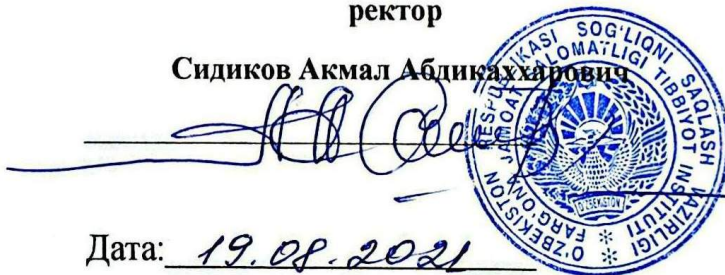 ректор
Сидиков Акмал Абдикаххарович
O'ZBEKISTON RESPUBLIKASI SOG'LIQNI SAQLASH VAZIRLIGI
FARG'ONA JAMOAT SALOMATLIGI TIBBIYOT INSTITUTI
O'ZBEKISTON
Дата: 19.08.2021